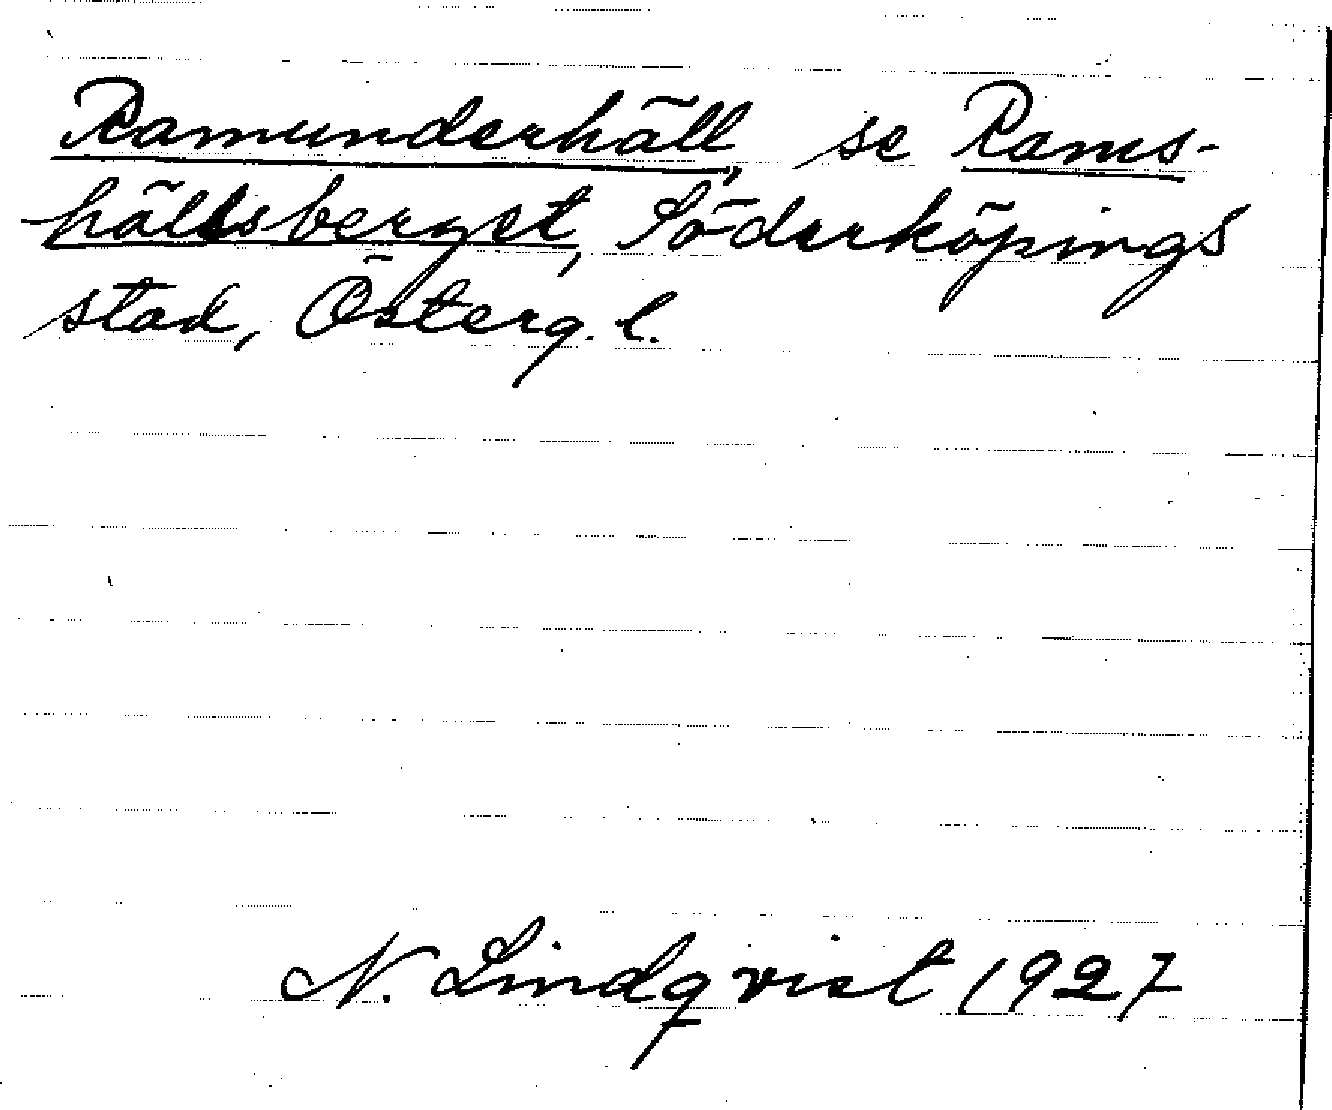 Ramunderhäll, se Rams-
hällsberget, Söderköpings
stad, Österg. l.
N. Lindqvist 1927